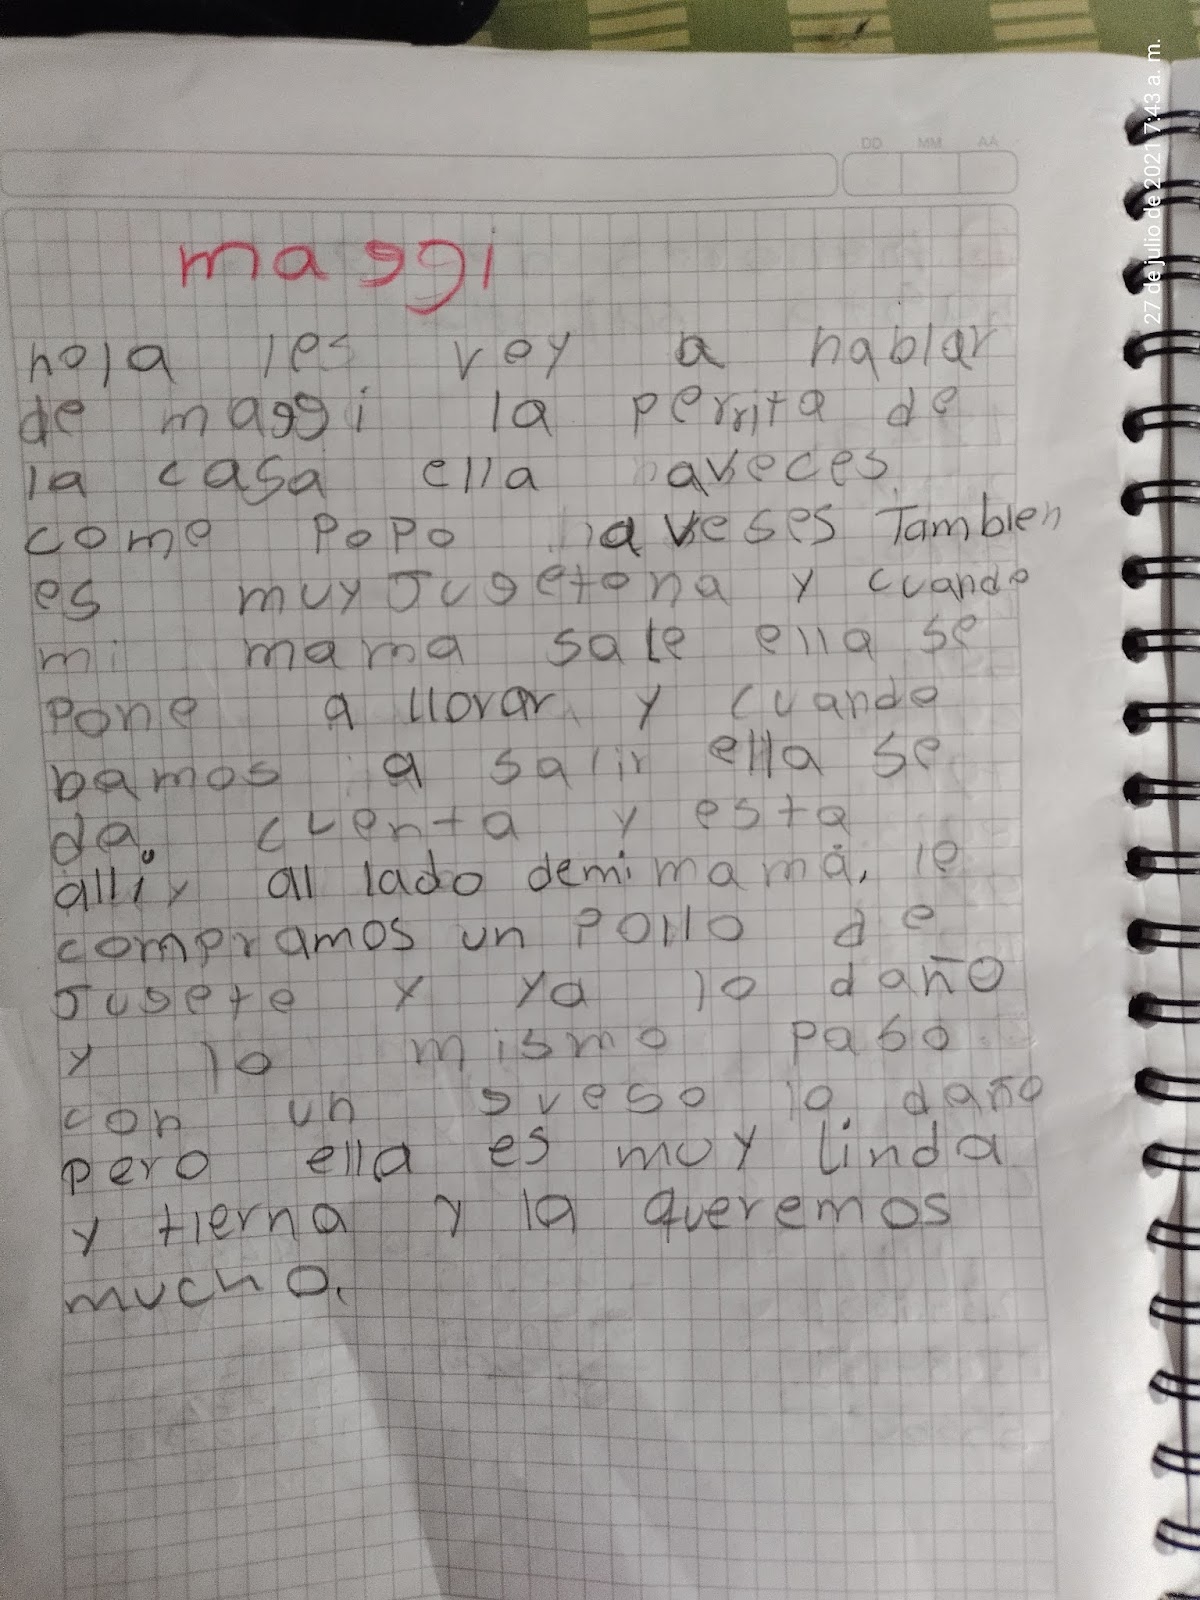 DD MM AA
maggi
hola les voy a hablar
de maggi la perrita de
la casa ella aveces
come popo aveses Tambien
es muy Jugetona y cuando
mi mama sale ella se
pone a llorar y cuando
bamos a salir ella se
da cuenta y esta
allí y al lado demi mamá, le
compramos un pollo de
Jugete y ya lo daño
y lo mismo paso
con un gueso lo daño
pero ella es muy linda
y tierna y la queremos
mucho.
27 de julio de 2021 7:43 a. m.